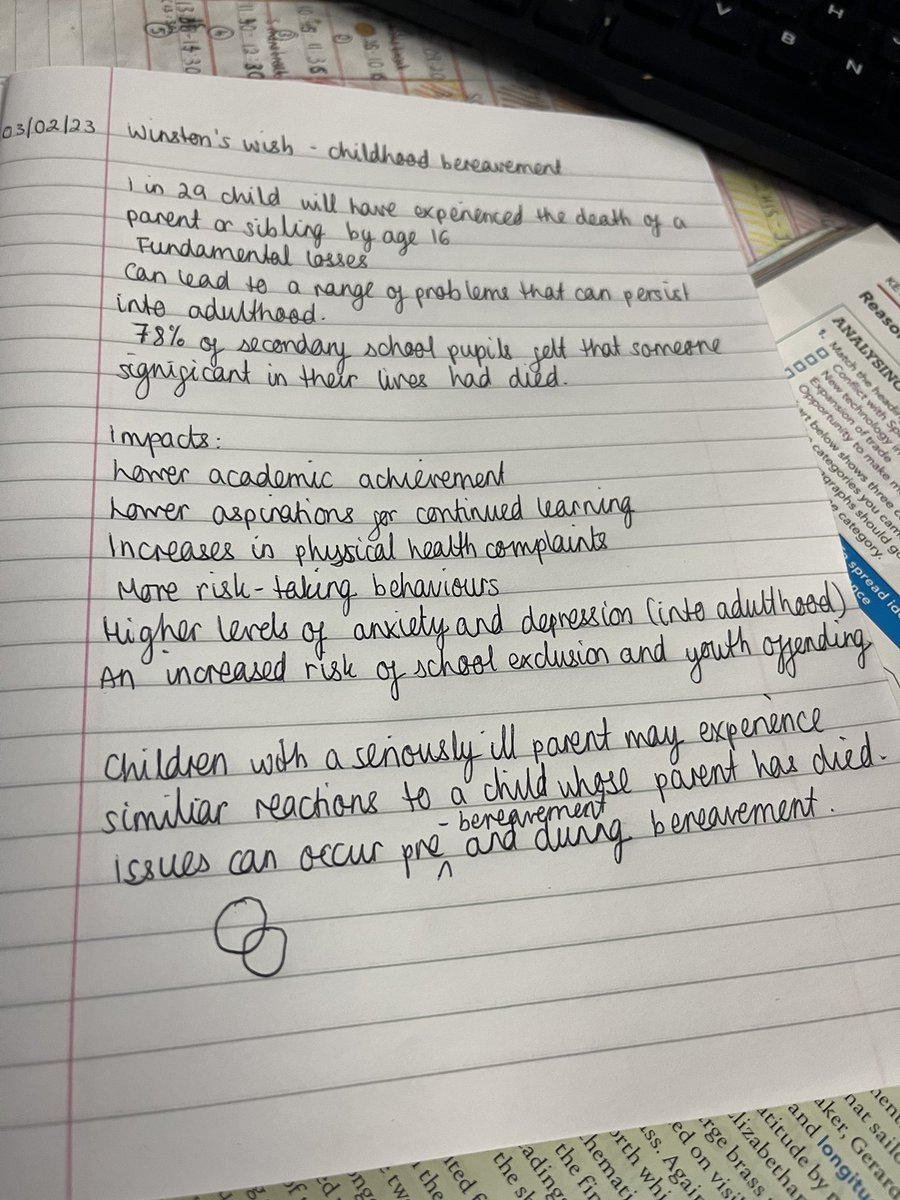 03/02/23 Winston's wish - childhood bereavement
1 in 29 child will have experienced the death of a
parent or sibling by age 16
Fundamental losses
Can lead to a range of problems that can persist
into adulthood.
78% of secondary school pupils felt that someone
significant in their lives had died.
Impacts:
Lower academic achievement
Lower aspirations for continued learning
Increases in physical health complaints
More risk-taking behaviours
Higher levels of anxiety and depression (into adulthood)
An increased risk of school exclusion and youth offending
Children with a seriously ill parent may experience
similiar reactions to a child whose parent has died.
- bereavement
issues can occur pre ^ and during bereavement.
V
H
B
N
Reaso
ANALYSING
1. Match the headi
Conflict with Sp
New technology in
Expansion of trade
Opportunity to make m
art below shows three c
categories you can
graphs should g
e category.
spread id
nce
10:35-11.35
11.30-12.30
13.30-14.30
nat sail
aker, Gerar
and longitu
titude by
lizabetha
rge brass
ed on visi
ss. Again
orth whi
hemati
the fin
adings
the s